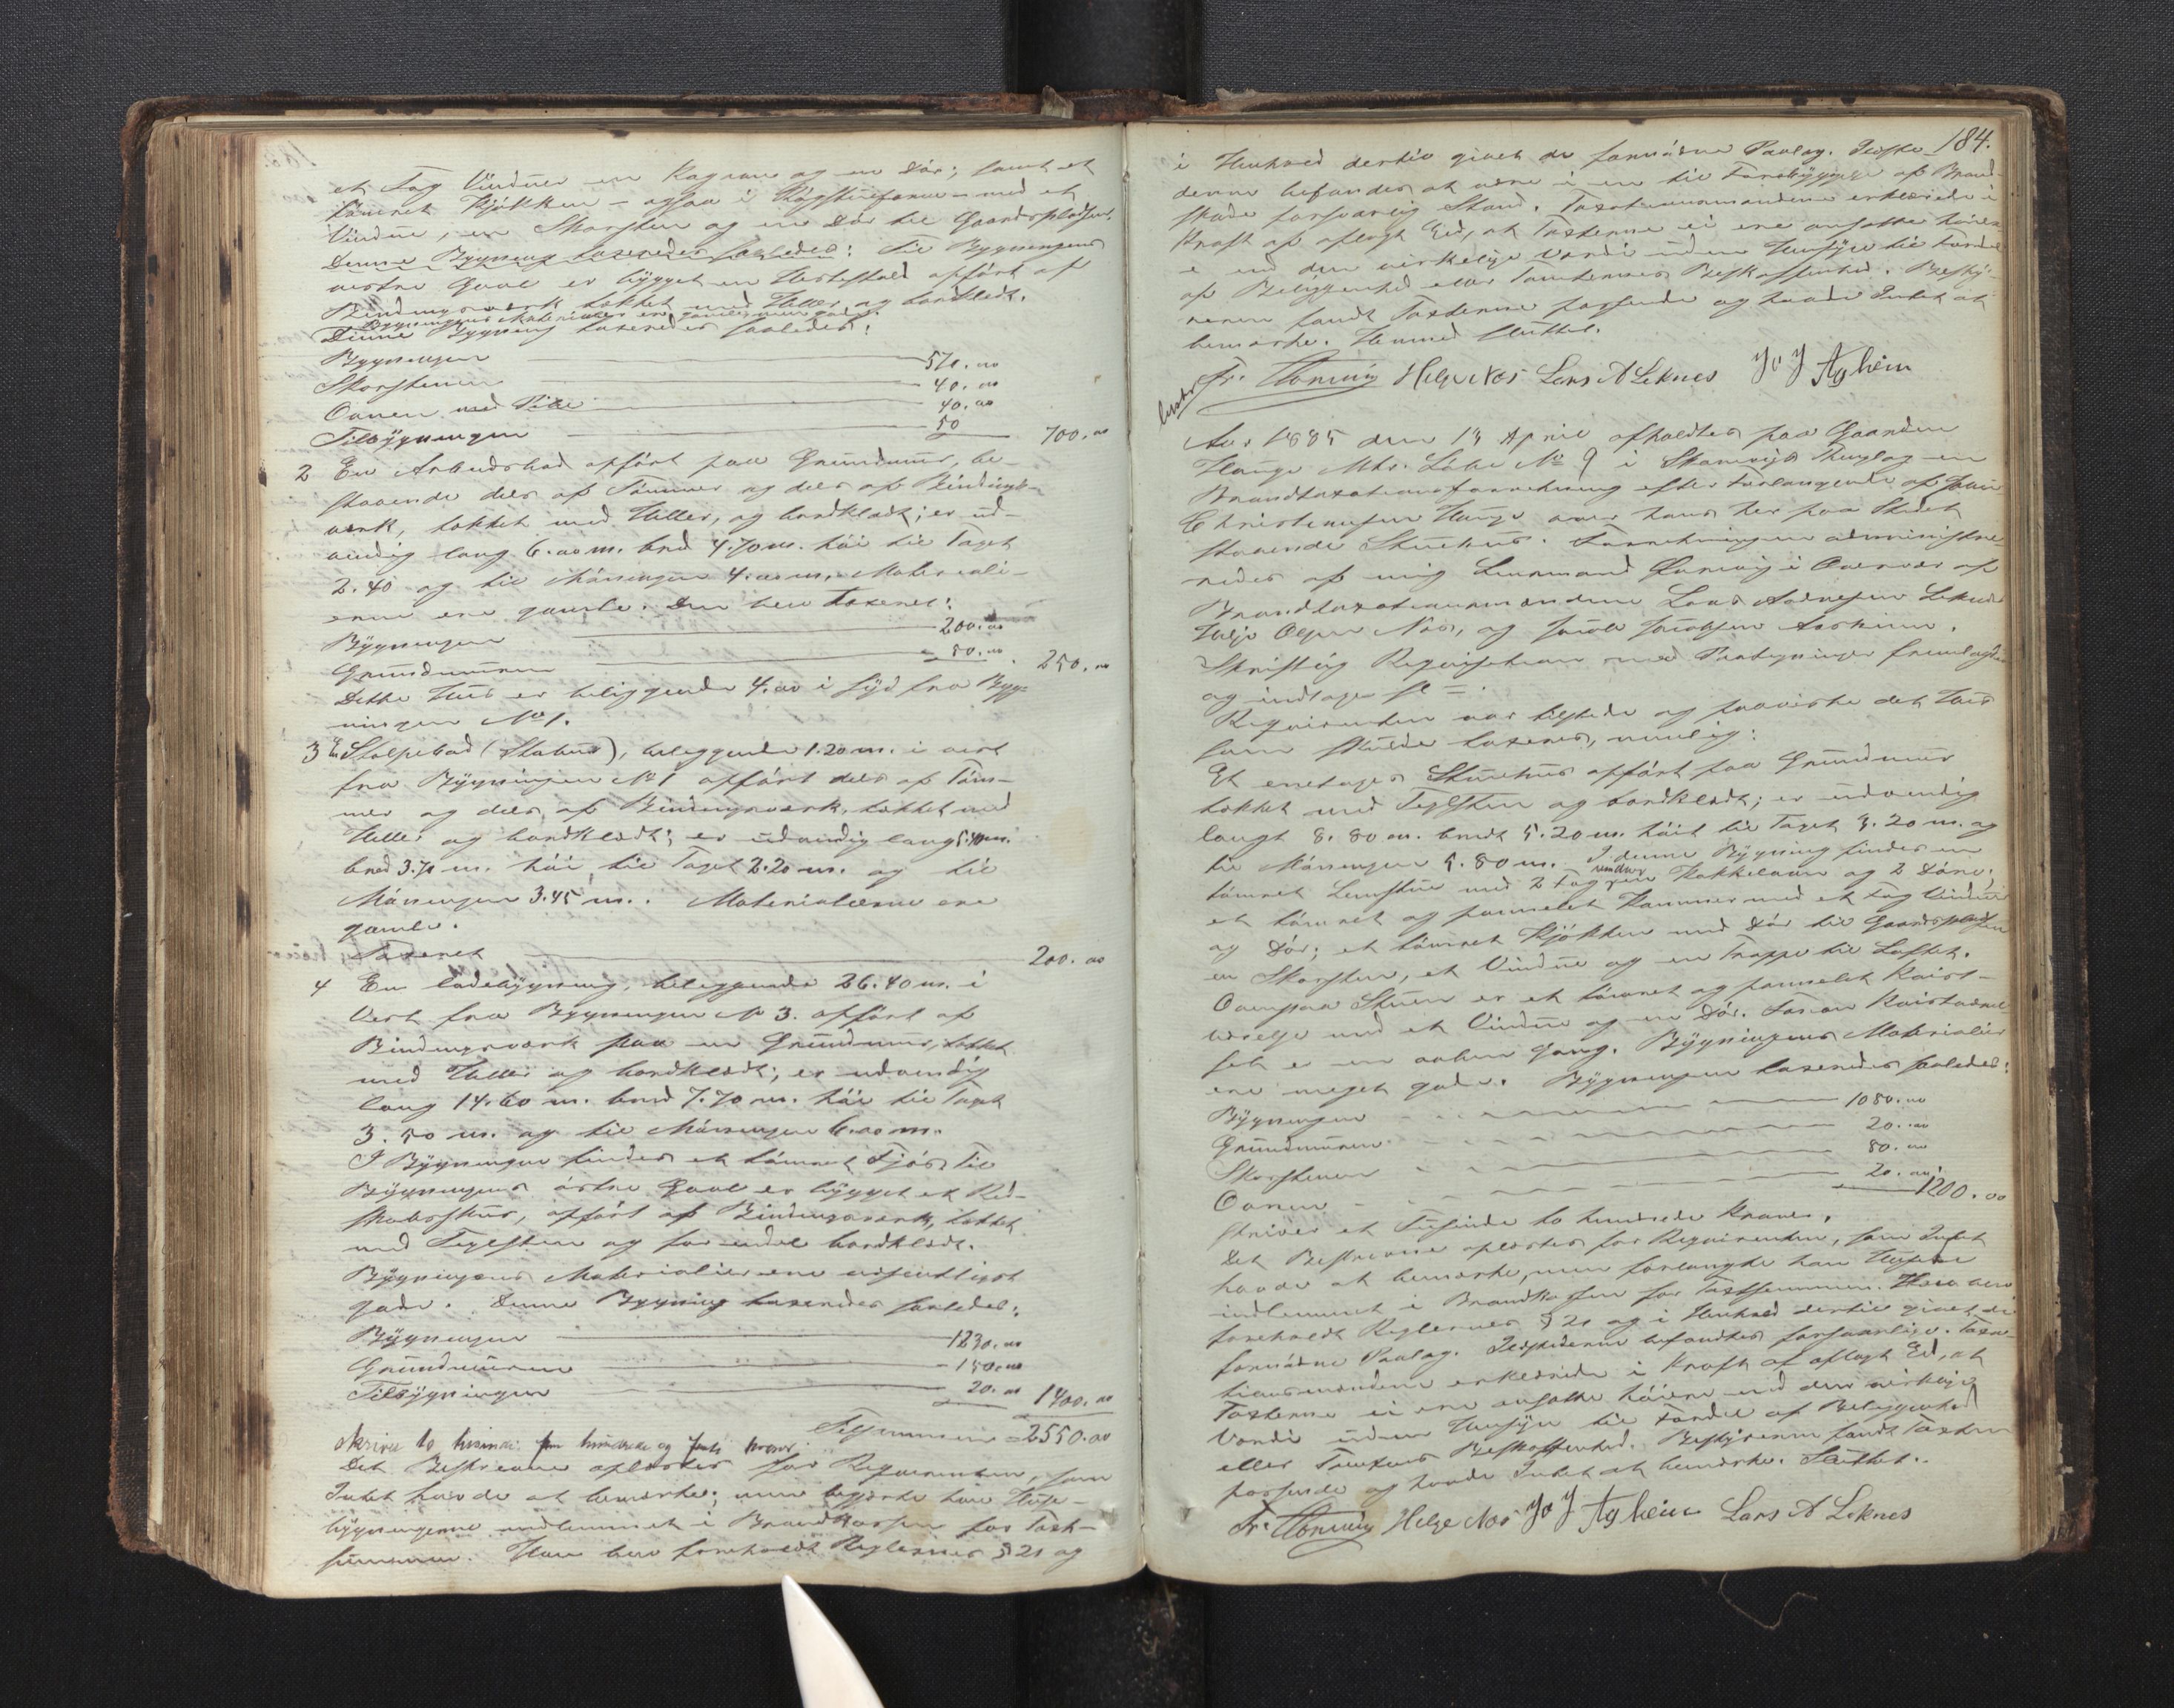 et Fag Vinduer en Kagovn og en Dör; samt et
tömret Kjökken - ogsaa i Røgstueform - med et
Vindue, en Skorsten og en Dör til Gaardspladsen.
Denne Bygning taxeredes saaledes: Til Bygningens
vestre Gavl er bygget en Hestestald opfört af
Bindingsværk takket med Heller og bordklædt.
Bygningens Materialier ere gamle, men gode.
Denne Bygning taxeredes saaledes:
Bygningen 570.00
Skorstenen 40.00
Ovnen med Pibe 40.00
Tilbygningen 50 700.00
2 En Arbeidsbod opfört paa Grundmur, be-
staaende dels af Tömmer og dels af Bindings-
værk, takket med Heller, og bordklædt; er ud-
vendig lang 6.00 m. bred 4.70 m. höi til Taget
2.40 og til Mönningen 4.00 m. Materiali-
erne ere gamle. Den blev taxeret:
Bygningen 200.00
Grundmuren 50.00 250.00
Dette Hus er beliggende 4.00 i Syd fra Byg-
ningen No 1.
3 En Stolpebod (Stabur), beliggende 1.20 m. i vest
fra Bygningen No 1 opfört dels af Töm-
mer og dels af Bindingsværk, takket med
Heller og bordklædt; er udvendig lang 5.40 m.
bred 3.70 m. höi til Taget 2.20 m. og til
Mönningen 3.45 m.. Materialierne ere
gamle.
Taxeret 200.00
4 En Ladebygning, beliggende 26.40 m. i
Vest fra Bygningen No 3. opfört af
Bindingsværk paa en Grundmur, takket
med Heller og bordklædt; er udvendig
lang 14.60 m. bred 7.70 m. höi til Taget
3.50 m. og til Mönningen 6.00 m.
I Bygningen findes et tömret Fjös. Til
Bygningens östre Gavl er bygget et Red-
skabsskur, opfört af Bindingsværk, takket
med Teglsten og for endel bordklædt.
Bygningens Materialier ere væsentligst
gode. Denne Bygning taxeredes saaledes:
Bygningen 1230.00
Grundmuren 150.00
Tilbygningen 20.00 1400.00
Tilsammen = 2550.00
skriver to tusinde fem hundrede og femti kroner.
Det Beskrevne oplæstes for Rekvirenten, som
Intet havde at bemærke; men begjærte han Huse-
bygningerne indlemmet i Brandkassen for Taxt-
summen. Han blev foreholdt Reglernes § 21 og
184.
i Henhold dertil givet de fornödne Paalæg. Ildste-
derne befandtes at være i en til Forebyggelse af Brand-
skade forsvarlig Stand. Taxationsmændene erklærede i
Kraft af aflagt Eed, at Taxterne ei ere ansatte höier-
e end den virkelige Værdi uden Hensyn til Fordel
af Beliggenhed eller Tomternes Beskaffenhed. Besty-
reren fandt Taxterne passende og havde Intet at
bemærke. Hermed sluttet.
Fr. Helge Næs Lars A Leknes J J Agheim
Aar 1885 den 13 April afholdtes paa Gaarden
Hauge Mtr. Löbe No 9 i Skaneviks Thinglag en
Brandtaxationsforretning efter Forlangende af
Christensen Hauge over hans her paa Stedet
staaende Stuehus. Forretningen administre-
redes af mig Lensmand i Overvær af
Brandtaxationsmændene Lars Leknes
Helje Olsen Næs, og Jacob Jacobsen .
Skriftlig Requisition med Paategninger fremlagdes
og indtages sl =.
Requirenten var tilstede og paaviste det Hus
som skulde taxeres, nemlig:
Et enetages Stuehus opfört paa Grundmur
takket med Teglsten og bordklædt; er udvendig
langt 8.80 m. bredt 5.20 m. höit til Taget 3.20 m. og
til Mönningen 5.80 m. I denne Bygning findes en
tömret Lemstue med 2 Fag vinduer, en Kakkelovn og 2 Döre;
et tömret og pannelet Kammer med et Fag Vinduer
og Dör; et tömret Kjökken med Dör til Gaardspladsen
en Skorsten, et Vindue og en Trappe til Loftet.
Ovenpaa Stuen er et tömret og pannelet Kvist-
værelse med et Vindue og en Dör. Foran Kvistværel
set er en aaben Gang. Bygningens Materialier
ere meget gode. Bygningen taxeredes saaledes:
Bygningen 1080.00
Grundmuren 20.00
Skorstenen 80.00
Ovnen 20.00 1200.00
skriver et Tusinde to hundrede Kroner.
Det Beskrevne oplæstes for Requirenten, som Intet
havde at bemærke, men forlangte han Huset
indlemmet i Brandkassen for Taxtsummen. Han blev
foreholdt Reglernes § 21 og i Henhold dertil givet de
fornödne Paalæg. Ildstederne befandtes forsvarlige. Taxa-
tionsmændene erklærede i Kraft af aflagt Ed, at
Taxterne ei ere ansatte höiere end den virkelige
Værdi uden Hensyn til Fordel af Beliggenhed
eller Tomtens Beskaffenhed. Bestyreren fandt Taxten
passende og havde Intet at bemærke. Sluttet.
Fr. Helge Næs J J Agheim Lars A Leknes